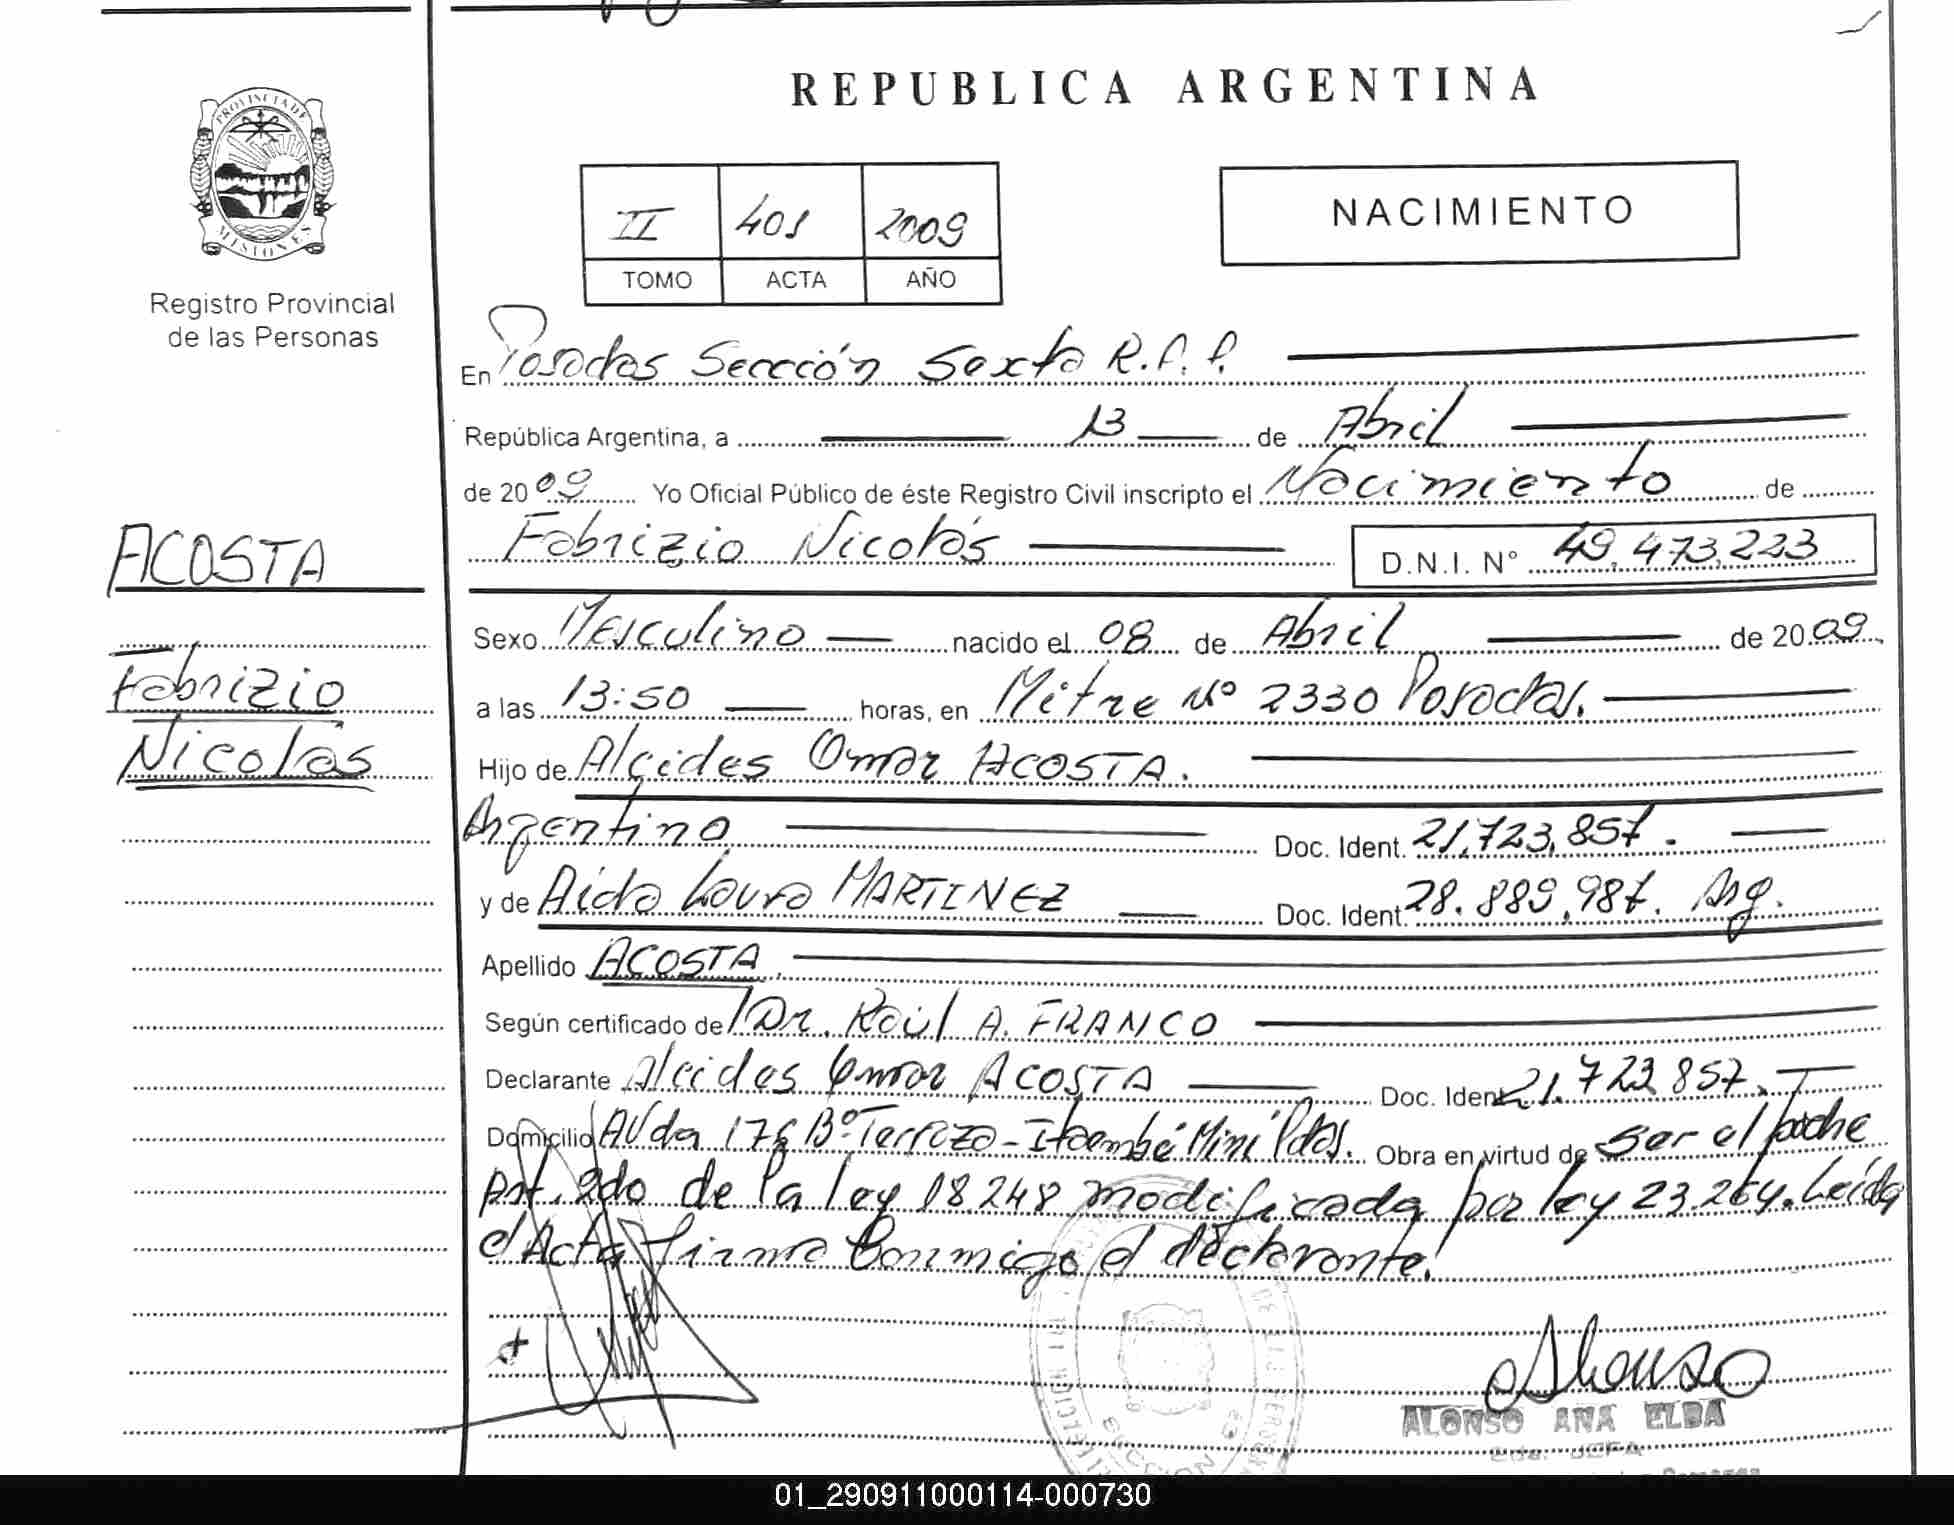 REPUBLICA ARGENTINA
PROVINCIA DE
MISIONES
Registro Provincial
de las Personas
II 401 2009
TOMO ACTA AÑO
NACIMIENTO
En Posadas Sección Sexta R.P.P.
República Argentina, a 13 de Abril
de 2009 Yo Oficial Público de éste Registro Civil inscripto el Nacimiento de
Fabrizio Nicolás D.N.I. N° 49.473.223
ACOSTA
Fabrizio
Nicolás
Sexo Masculino nacido el 08 de Abril de 2009
a las 13:50 horas, en Mitre Nº 2330 Posadas.
Hijo de Alcides Omar ACOSTA.
Argentino Doc. Ident. 21.723.857.
y de Aida Laura MARTINEZ Doc. Ident. 28.889.987. Arg.
Apellido ACOSTA
Según certificado de Dr. Raúl A. FRANCO
Declarante Alcides Omar ACOSTA Doc. Ident 21.723.857.
Domicilio AVda 176 Bº Terrazo - Itaembé Mini Pdas. Obra en virtud de ser el padre
Art. 2do de la ley 18.248 modificada por ley 23.264. Leída
el Acta firma conmigo el declarante.
Alonso
ALONSO ANA ELBA
JEFA
SECCION
01_290911000114-000730